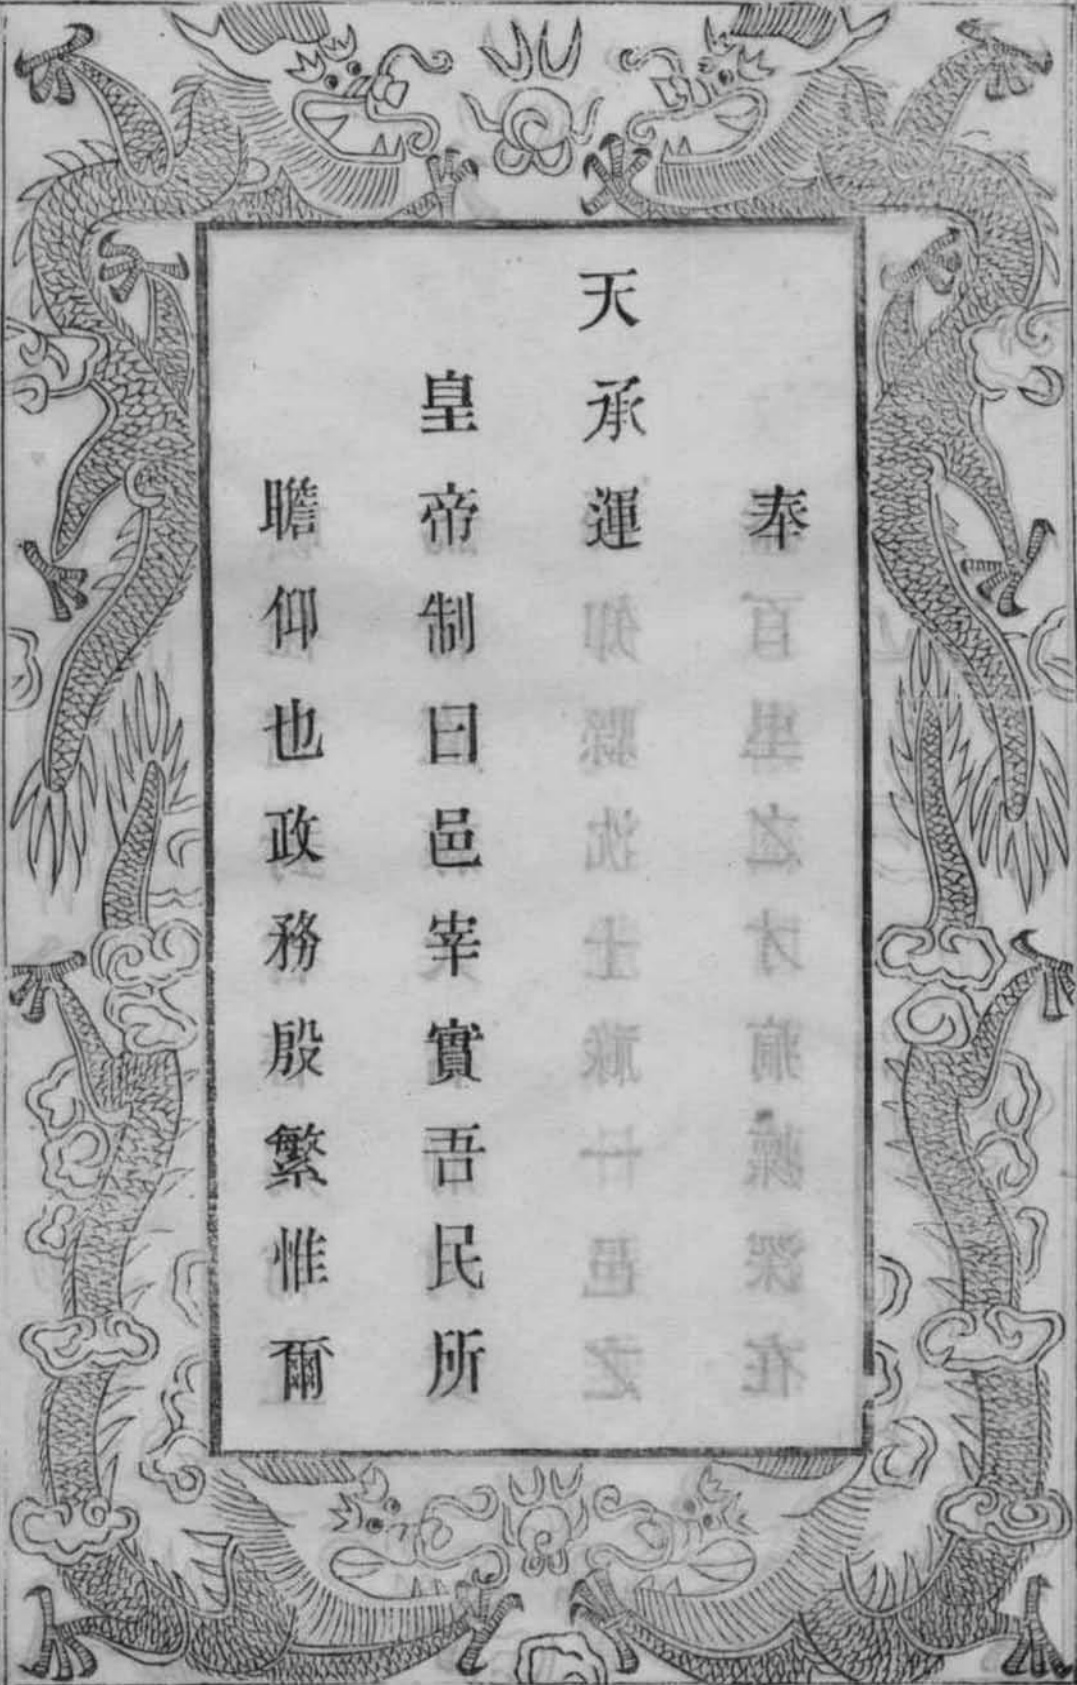 奉
天承運
皇帝制曰邑宰實吾民所
瞻仰也政務殷繁惟爾